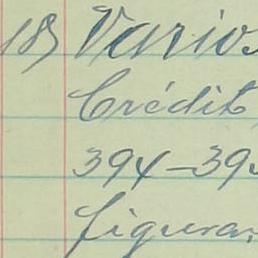 185 Varios
Crédit
394-395
figuran